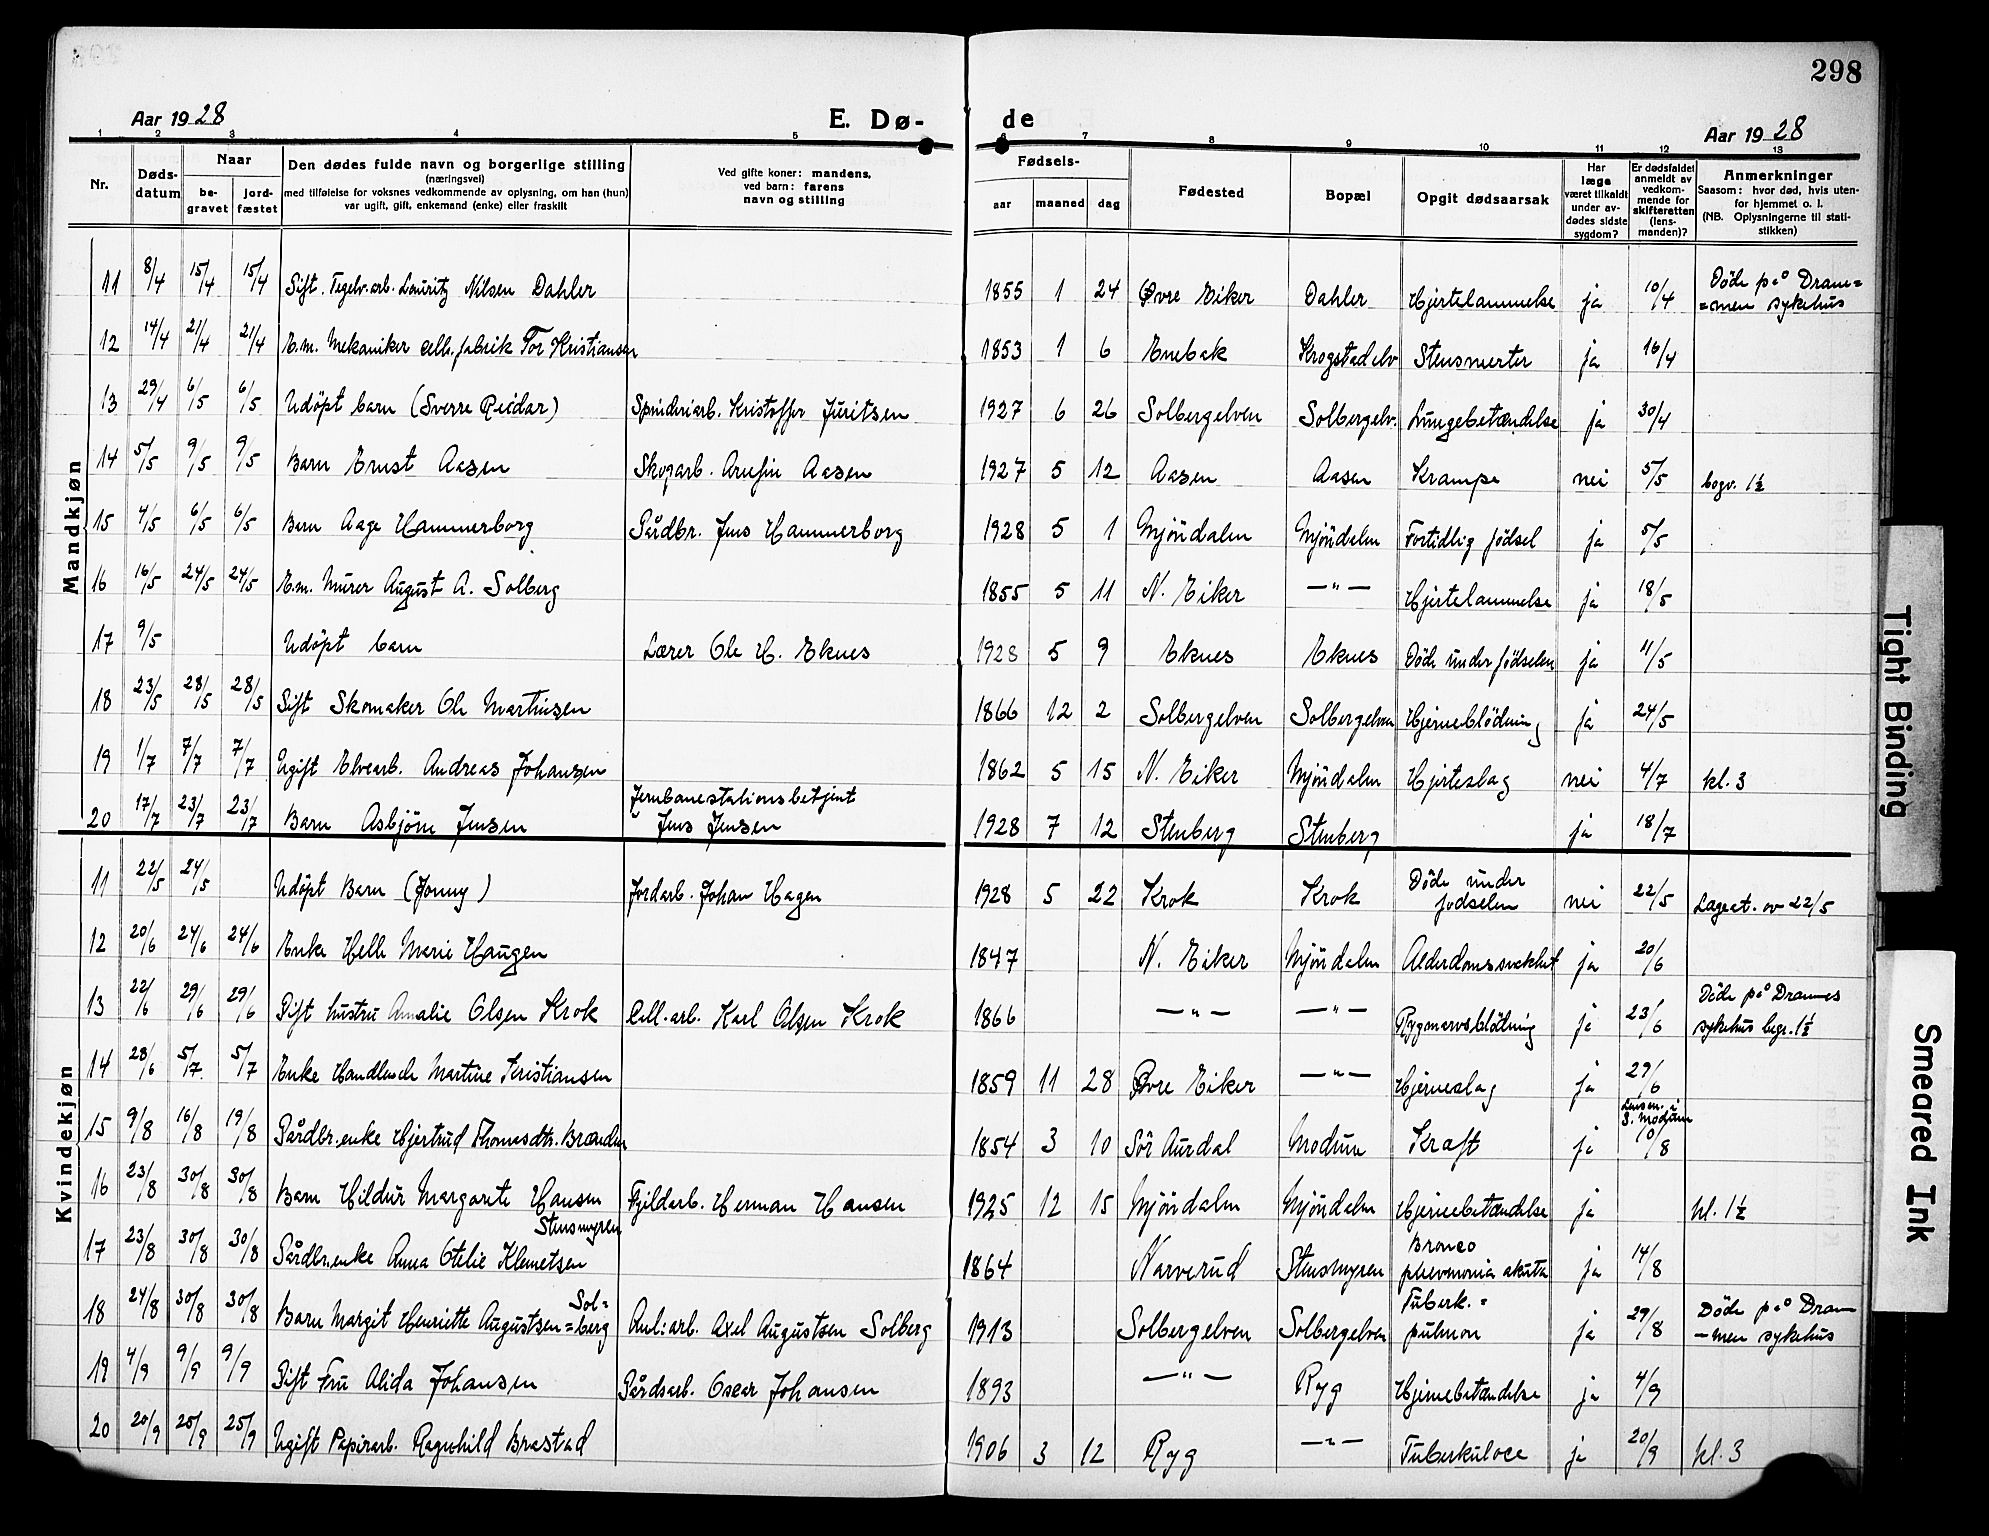 298
Aar 1928 E. Dø- de Aar 1928
1 2 3 4 5 6 7 8 9 10 11 12 13
Nr. Døds-datum Naar be-gravet jord-fæstet Den dødes fulde navn og borgerlige stilling (næringsvei) med tilføielse for voksnes vedkommende av oplysning, om han (hun) var ugift, gift, enkemand (enke) eller fraskilt Ved gifte koner: mandens, ved barn: farens navn og stilling Fødsels- aar maaned dag Fødested Bopæl Opgit dødsaarsak Har læge været tilkaldt under av-dødes sidste sygdom? Er dødsfaldet anmeldt av vedkom-mende for skifteretten (lens-manden)? Anmerkninger Saasom: hvor død, hvis uten-for hjemmet o. l. (NB. Oplysningerne til stati-stikken)
Mandkjøn
11 8/4 15/4 15/4 Gift. Teglv.arb. Lauritz Nilsen Dahler 1855 1 24 Øvre Eiker Dahler Hjertelammelse ja 10/4 Döde på Dram==men sykehus
12 14/4 21/4 21/4 E.m. Mekaniker cell.fabrik Tor Kristiansen 1853 1 6 Enebak Krogstadelv Stensmerter ja 16/4
13 29/4 6/5 6/5 Udöpt barn (Sverre Reidar) Spinderiarb. Kristoffer Juritsen 1927 6 26 Solbergelven Solbergelv. Lungebetændelse ja 30/4
14 5/5 9/5 9/5 Barn Ernst Aasen Skogarb. Aasen 1927 5 12 Aasen Aasen Krampe nei 5/5 begr. 1½
15 4/5 6/5 6/5 Barn Aage Hammerborg Gårdbr. Jens Hammerborg 1928 5 1 Mjöndalen Mjöndalen Fortidlig födsel ja 5/5
16 16/5 24/5 24/5 E.m. Murer August A. Solberg 1855 5 11 N. Eiker —"— Hjertelammelse ja 18/5
17 9/5 Udöpt barn Lærer Ole H. Eknes 1928 5 9 Eknes Eknes Döde under födselen ja 11/5
18 23/5 28/5 28/5 Gift Skomaker Ole Martinsen 1866 12 2 Solbergelven Solbergelven Hjerneblödning ja 24/5
19 1/7 7/7 7/7 Ugift Elvearb. Andreas Johansen 1862 5 15 N. Eiker Mjöndalen Hjerteslag nei 4/7 kl. 3
20 17/7 23/7 23/7 Barn Asbjörn Jensen Jernbanestationsbetjent Jens Jensen 1928 7 12 Stenberg Stenberg ja 18/7
Kvindekjøn
11 22/5 24/5 Udöpt Barn (Jonny) Jordarb. Johan Hagen 1928 5 22 Krok Krok Döde under fødselen nei 22/5 Lageat. av 22/5
12 20/6 24/6 24/6 Enke Helle Marie Haugen 1847 N. Eiker Mjöndalen Alderdomssvakhet ja 20/6
13 22/6 29/6 29/6 Gift hustru Amalie Olsen Krok Cell.arb. Karl Olsen Krok 1866 —"— —"— Rygmarvsblödning ja 23/6 Döde på Drammes sykehus begr. 1½
14 28/6 5/7 5/7 Enke Handlende Martine Kristiansen 1859 11 28 Øvre Eiker —"— Hjerneslag ja 29/6
15 9/8 16/8 19/8 Gårdbr.enke Hjertrud Thomasdtr. Brænden 1854 3 10 Sör Aurdal Modum Kraft ja Lensm. i S. Modum 10/8
16 23/8 30/8 30/8 Barn Hildur Margarete Hansen Fjeldarb. Herman Hansen 1925 12 15 Mjöndalen Mjöndalen Hjernebetændelse ja kl. 1½
17 23/8 30/8 30/8 Gårdbr.enke Anna Otelie Klemetsen Stensmyren 1864 Narverud Stensmyren Bronco phevmonia akuta ja 14/8
18 24/8 30/8 30/8 Barn Margit Henriette Augustsen Sol==berg Anl:arb. Axel Augustsen Solberg 1913 Solbergelven Solbergelven Tuberk.= pulmon ja 29/8 Döde på Dram—men sykehus
19 4/9 9/9 9/9 Gift Fru Alida Johansen Gårdsarb. Oscar Johansen 1893 —"— Ryg Hjernebetændelse ja 4/9
20 20/9 25/9 25/9 Ugift Papirarb. Ragnhild Brastad 1906 3 12 Ryg —"— Tuberkulose ja 20/9 kl. 3
Tight Binding
Smeared Ink